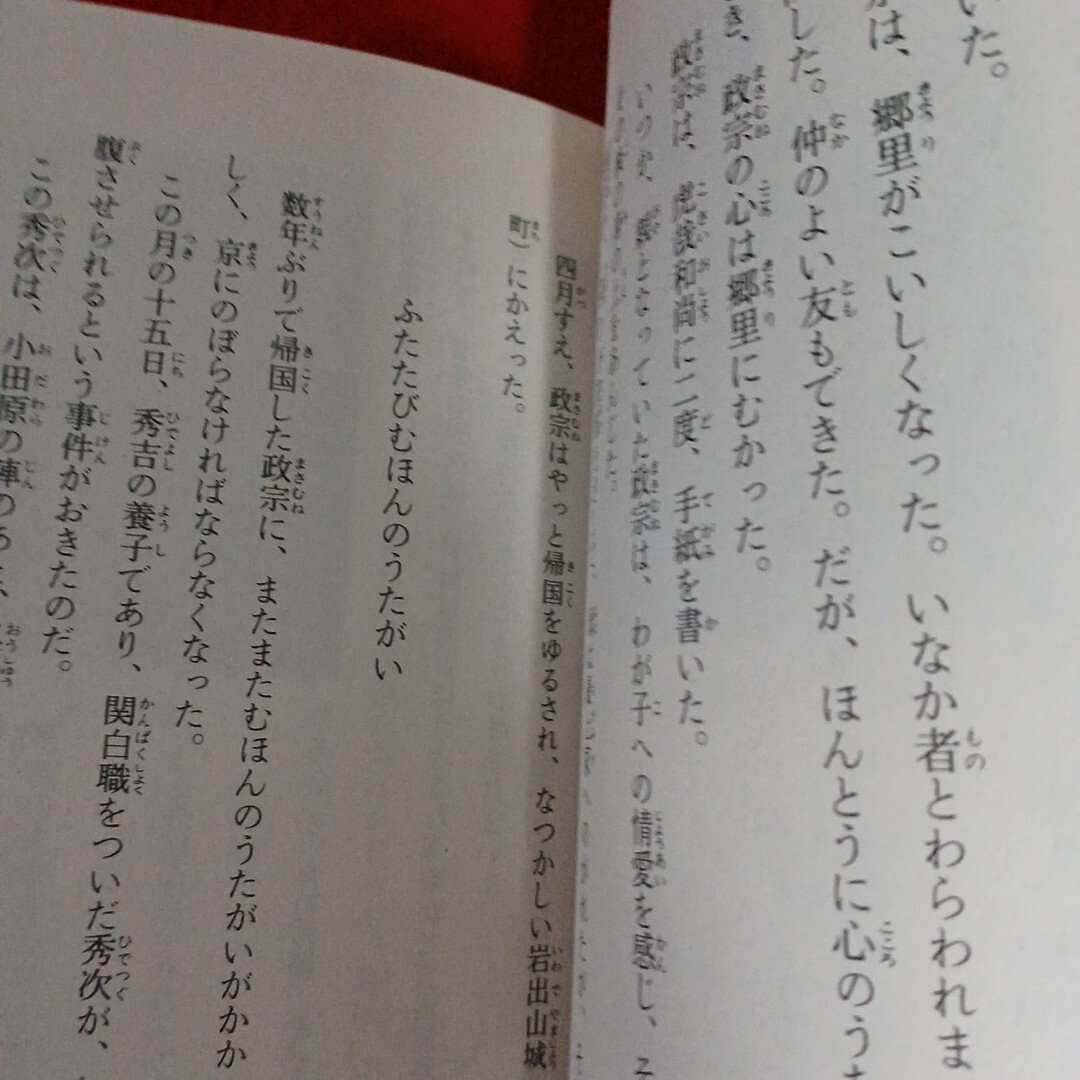 いた。
は、郷里がこいしくなった。いなか者とわらわれま
した。仲のよい友もできた。だが、ほんとうに心のう
き、政宗の心は郷里にむかった。
政宗は、虎哉和尚に二度、手紙を書いた。
となっていた政宗は、わが子への情愛を感じ、
四月すえ、政宗はやっと帰国をゆるされ、なつかしい岩出山城
町）にかえった。
ふたたびむほんのうたがい
数年ぶりで帰国した政宗に、またまたむほんのうたがいがかか
しく、京にのぼらなければならなくなった。
この月の十五日、秀吉の養子であり、関白職をついだ秀次が、
腹させられるという事件がおきたのだ。
この秀次は、小田原の陣のあと、